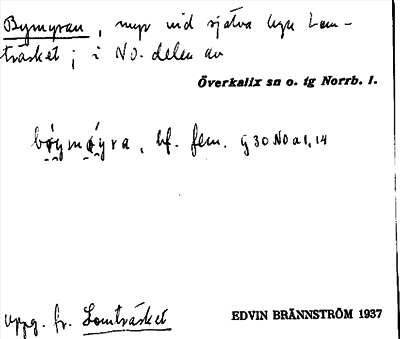 Bymyran, myr vid själva byn Lom-
träsket; i NO. delen av
Överkalix sn o. tg Norrb. l.
bøymǿyra, bf. fem. g 30 NO a 1, 14
uppg. fr. Lomträsket
EDVIN BRÄNNSTRÖM 1937